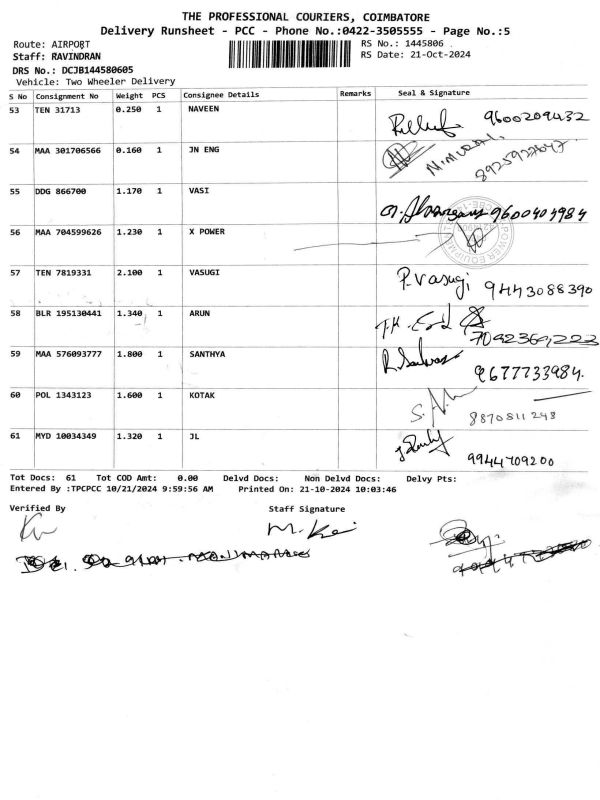 THE PROFESSIONAL COURIERS, COIMBATORE
Delivery Runsheet - PCC - Phone No.:0422-3505555 - Page No.:5
Route: AIRPORT
RS No.: 1445806
Staff: RAVINDRAN
RS Date: 21-Oct-2024
DRS No.: DCJB144580605
Vehicle: Two Wheeler Delivery
S No Consignment No Weight PCS Consignee Details Remarks Seal & Signature
53 TEN 31713 0.250 1 NAVEEN 9600209432
54 MAA 301706566 0.160 1 JN ENG
55 DDG 866700 1.170 1 VASI 9600404984
56 MAA 704599626 1.230 1 X POWER
57 TEN 7819331 2.100 1 VASUGI P.Vasugi 9443088390
58 BLR 195130441 1.340 1 ARUN
59 MAA 576093777 1.800 1 SANTHYA 9677733984.
60 POL 1343123 1.600 1 KOTAK 8870811248
61 MYD 10034349 1.320 1 JL 9944709200
Tot Docs: 61 Tot COD Amt: 0.00 Delvd Docs: Non Delvd Docs: Delvy Pts:
Entered By :TPCPCC 10/21/2024 9:59:56 AM Printed On: 21-10-2024 10:03:46
Verified By Staff Signature